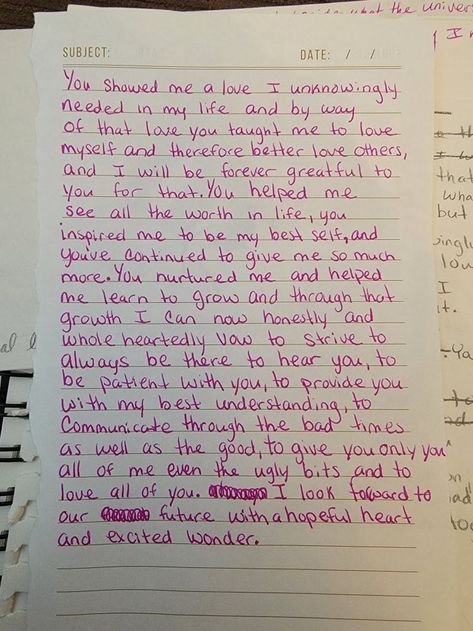 what the univer
I
SUBJECT:
DATE: / /
You showed me a love I unknowingly
needed in my life and by way
of that love you taught me to love
myself and therefore better love others,
and I will be forever greatful to
you for that. You helped me
see all the worth in life, you
inspired me to be my best self, and
you've continued to give me so much
more. You nurtured me and helped
me learn to grow and through that
growth I can now honestly and
whole heartedly vow to strive to
always be there to hear you, to
be patient with you, to provide you
with my best understanding, to
communicate through the bad times
as well as the good, to give you only you
all of me even the ugly bits and to
love all of you. I look forward to
our future with a hopeful heart
and excited wonder.
that
wha
but
I
it.